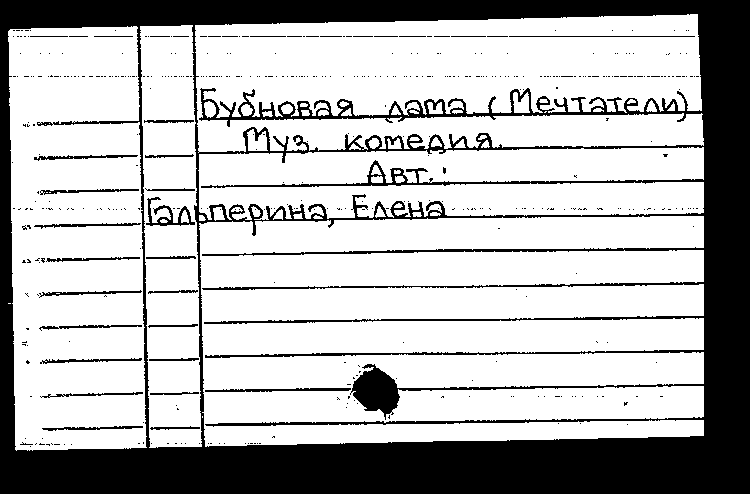 Бубновая дама (Мечтатели)
Муз. комедия.
Авт.:
Гальперина, Елена